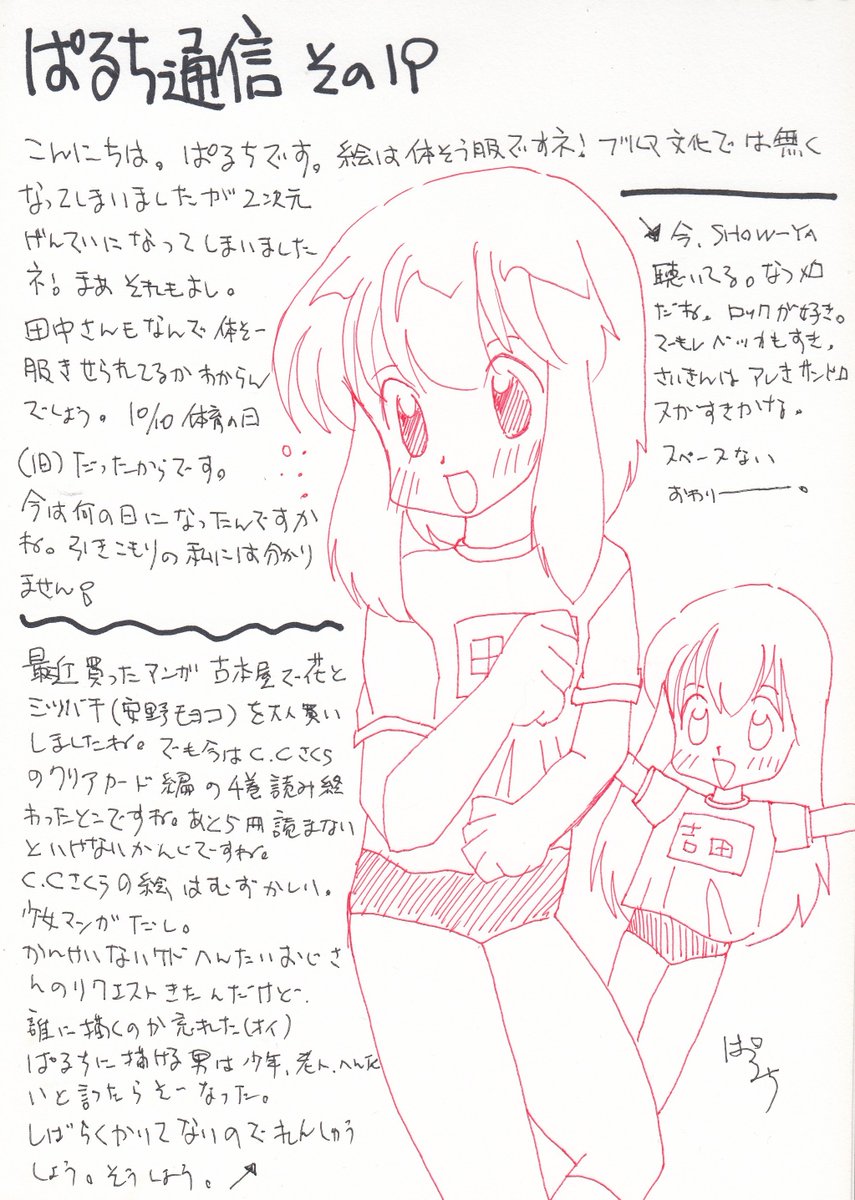 ぱるち通信 その19
こんにちは。ぱるちです。絵は体そう服ですネ! ブルマ文化では無く
なってしまいましたが2次元
げんていになってしまいました
ネ! まあ それもよし。
田中さんもなんで体そー
服きせられてるかわからん
でしょう。10/10 体育の日
(旧)だったからです。
今は何の日になったんですか
ね。引きこもりの私には分かり
ません
最近買ったマンガ 古本屋で花と
ミツバチ(安野モヨコ)を大人買い
しましたね。でも今はC.Cさくら
のクリアカード編の4巻読み終
わったとこですね。あと5冊読まない
といけないかんじですね。
C.Cさくらの絵はむずかしい。
少女マンガだし。
かんけいないケド へんたいおじさ
んのリクエストきたんだけど
誰に描くのか忘れた(オイ)
ぱるちに描ける男は少年、老人、へんた
いと言ったらそーなった。
しばらくかりてないのでれんしゅう
しよう。そうしよう。↗
↘今、SHOW-YA
聴いてる。なつメロ
だね。ロックが好き。
でもレベッカもすき。
さいきんはアレキサンドロ
スがすきかな。
スペースない
おわり――。
田
吉田
ぱるち